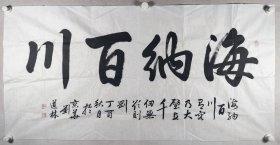 海納百川
海納
百川
有容
乃大
壁立
千
仞無
欲則
剛
丁酉
秋月
於
京華
道林